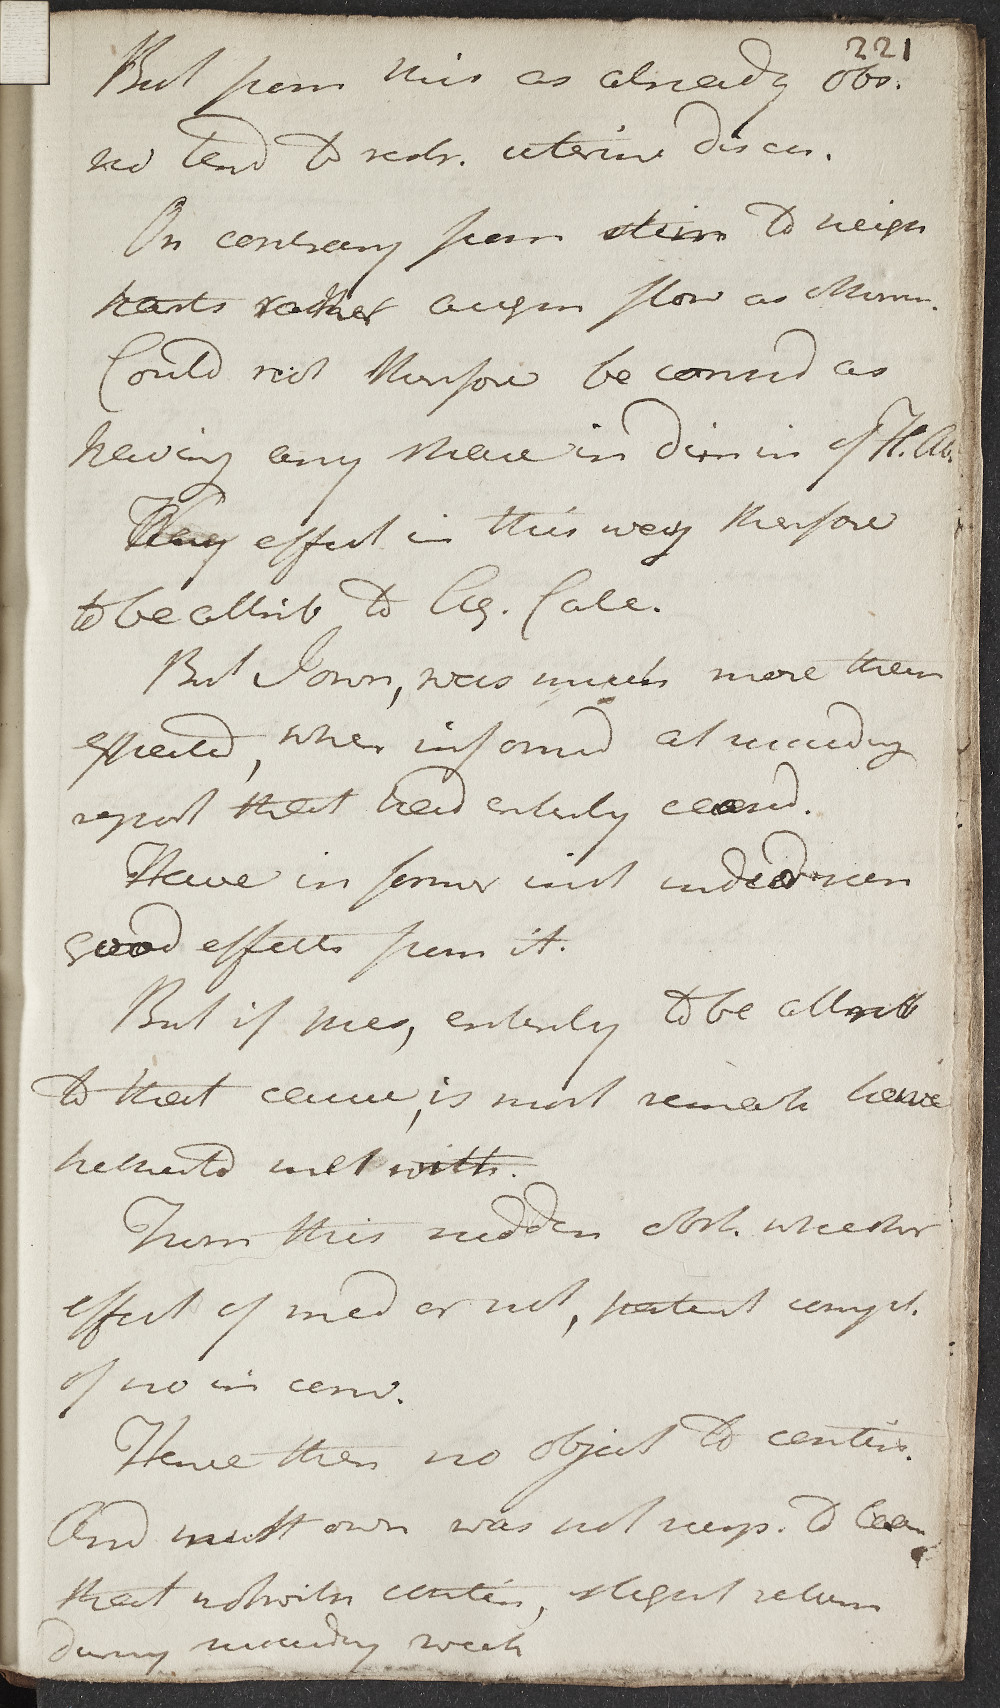 221
But from this as already obs.
no tend to restr. uterine disch.
On contrary from stim to neigh
parts rather augm flow as Mensn.
Could not therefore be consid as
having any share in dimin of H. Alb.
They effect in this way therefore
to be attrib to Aq. Calc.
But I own, was much more than
expected, when informd at succeeding
report that had entirely ceasd.
Have in former inst indeed seen
good effects from it.
But if pres, entirely to be attrib
to that cause, is most remark have
hitherto met with.
From this sudden obst. whether
effect of med or not, patient compl.
of no inconv.
Hence then no object to contin.
And must own was not surp. to learn
that notwith contin, slight return
during succeeding week